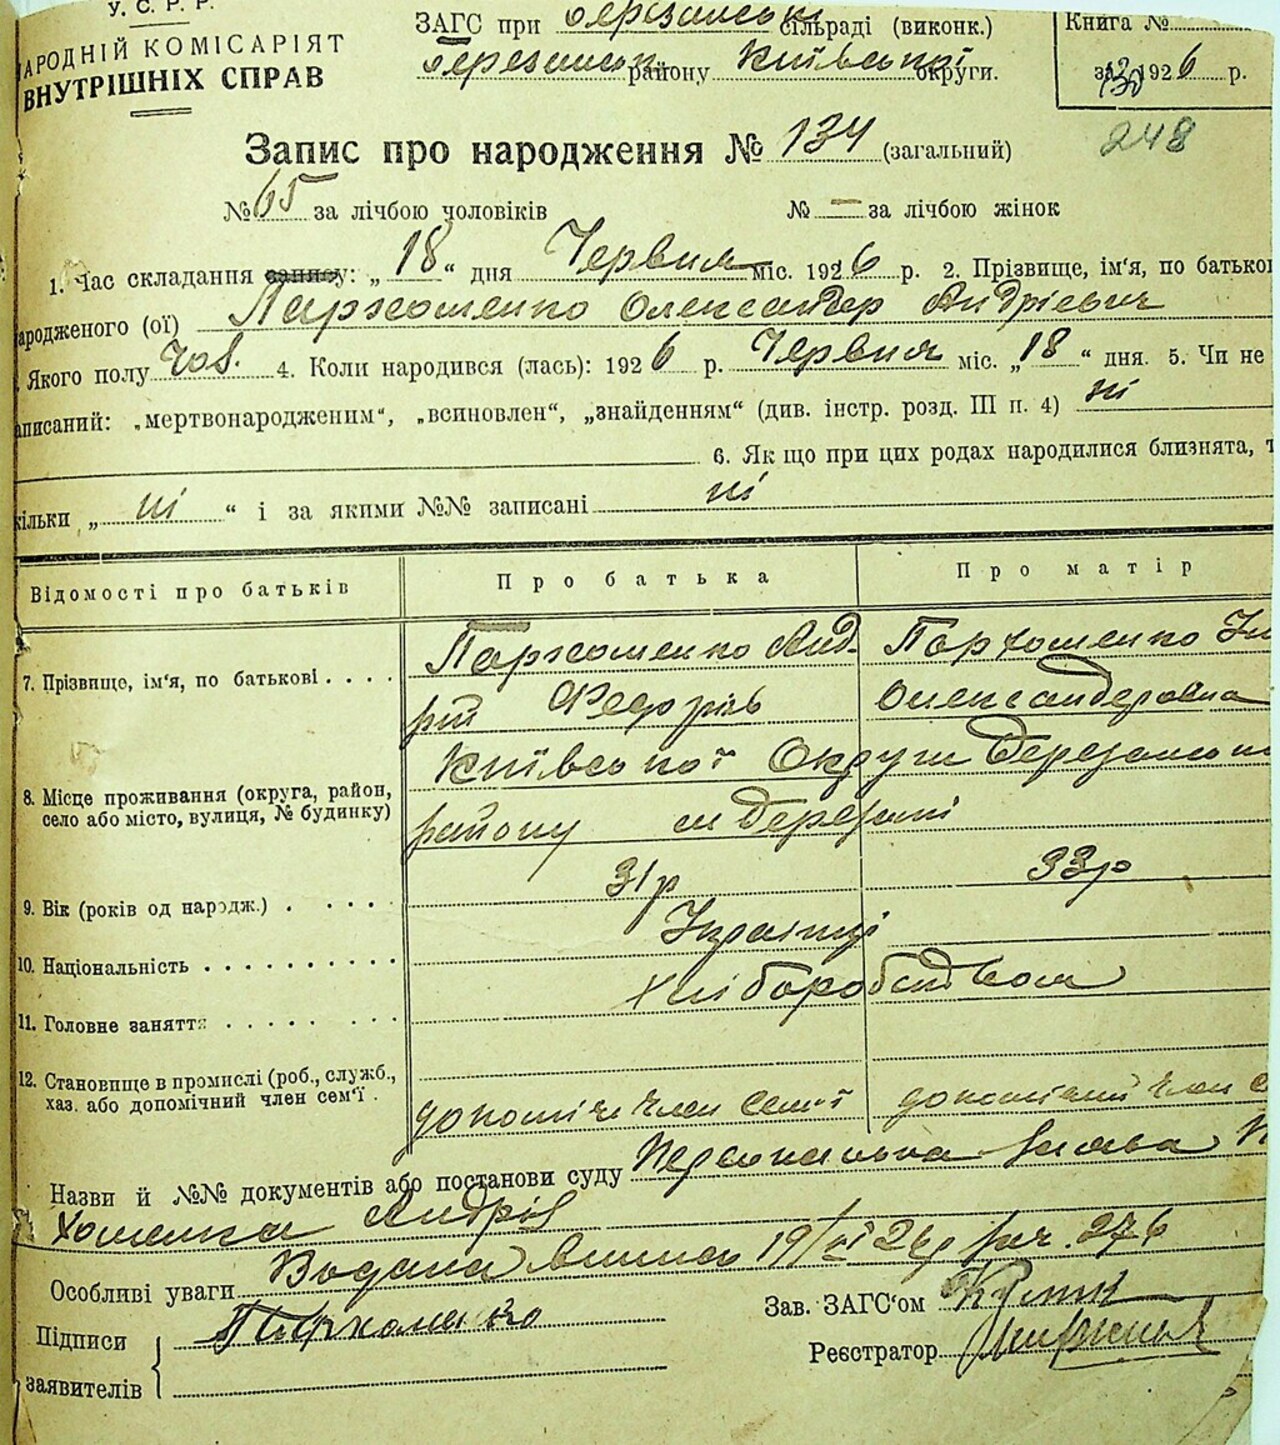 У. С. Р. Р.
АРОДНІЙ КОМІСАРІЯТ
ВНУТРІШНІХ СПРАВ
ЗАГС при Березанські сільраді (виконк.)
Березанськ району Київської округи.
Книга №
за 1926 р.
248
Запис про народження № 134 (загальний)
№ 65 за лічбою чоловіків № — за лічбою жінок
1. Час складання запису: „ 18 “ дня Червня міс. 1926 р. 2. Прізвище, ім'я, по батько
ародженого (ої) Пархоменко Олександер Андрієвич
Якого полу чов. 4. Коли народився (лась): 1926 р. Червня міс. „ 18 “ дня. 5. Чи не
аписаний: „мертвонародженим“, „всиновлен“, „знайденням“ (див. інстр. розд. III п. 4) ні
6. Якщо при цих родах народилися близнята, т
кільки „ ні “ і за якими №№ записані ні
Відомості про батьків Про батька Про матір
7. Прізвище, ім'я, по батькові Пархоменко Анд- Пархоменко
рій Федорів Олександеровна
8. Місце проживання (округа, район, село або місто, вулиця, № будинку) Київської Округи Березансько
району м Березані
9. Вік (років од народж.) 31 р 33 р
10. Національність Українці
11. Головне заняття Хліборобством
12. Становище в промислі (роб., служб., хаз. або допомічний член сем'ї. допоміч член семї допомічний член с
Назви й №№ документів або постанови суду Персональна заява П
хоменка Андрія
Особливі уваги Видана виписъ 19/VI 26 р 276
Підписи заявителів Пархоменко
Зав. ЗАГС'ом
Реєстратор